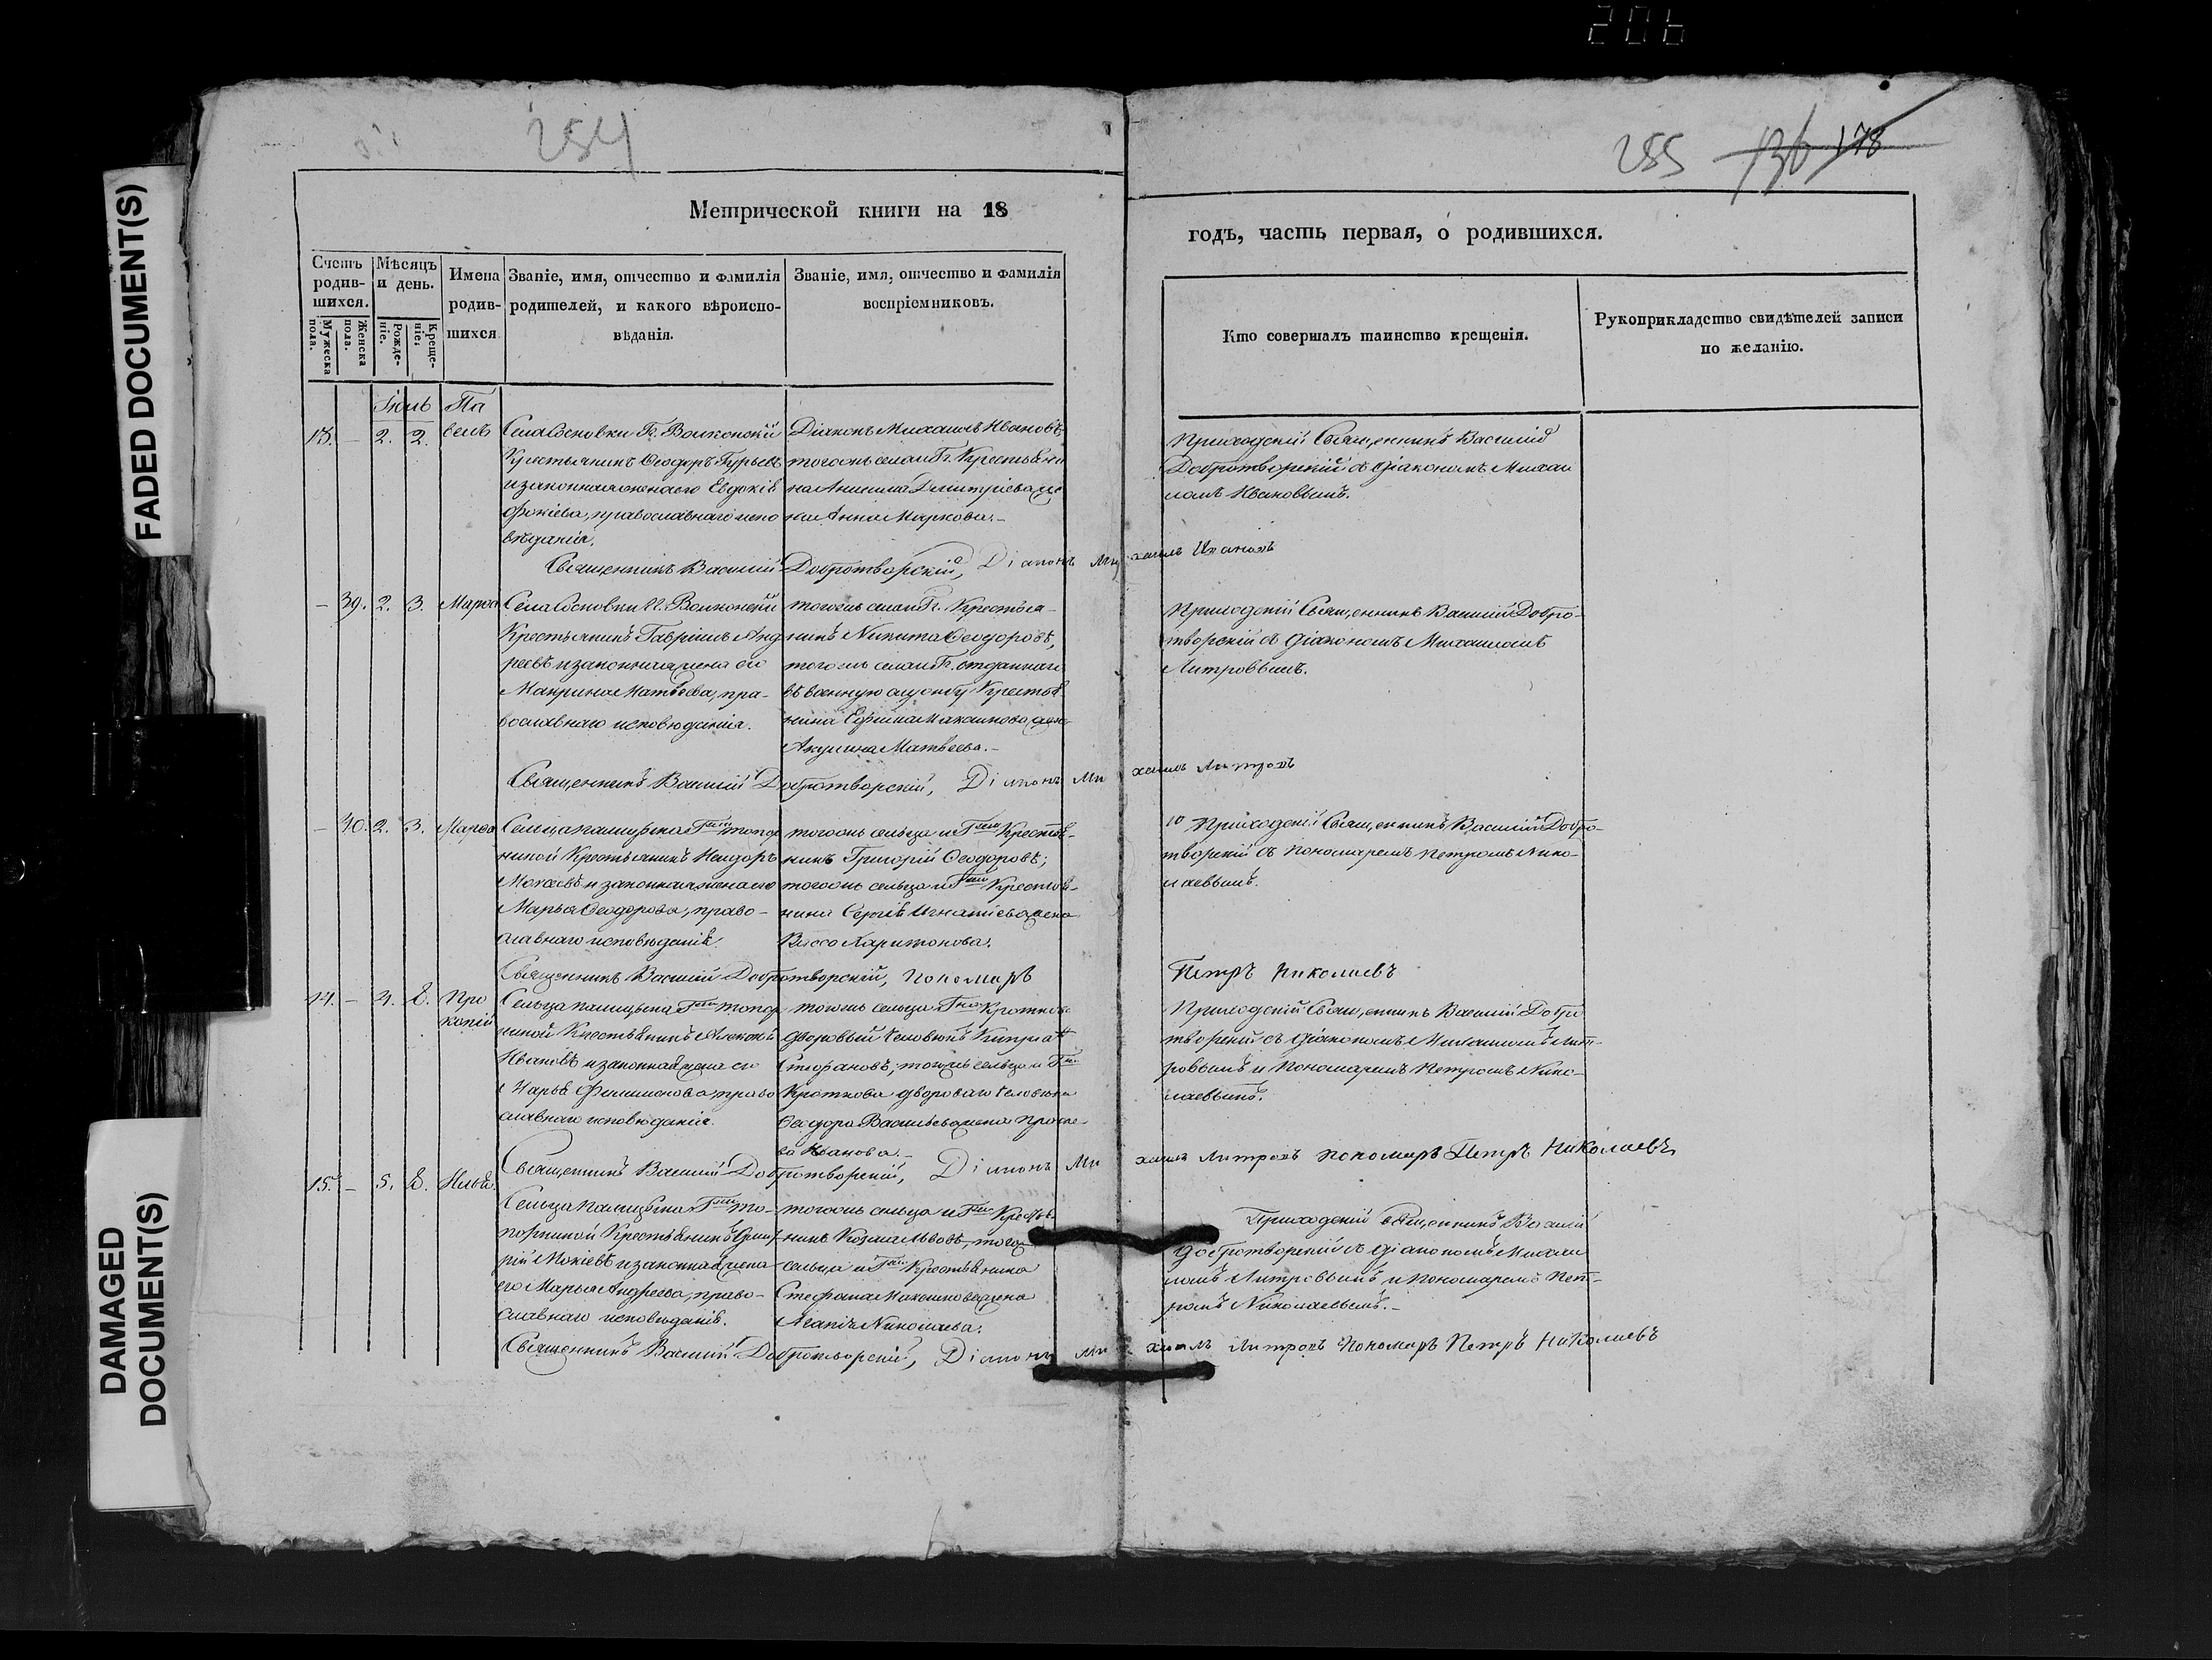 206
254
255 136 178
FADED DOCUMENT(S)
DAMAGED
DOCUMENT(S)
Метрической книги на 18
годъ, часть первая, о родившихся.
Счетъ
родив-
шихся.
Мужеска
пола.
Женска
пола.
Мѣсяцъ
и день.
Рожде-
ніе.
Креще-
ніе.
Имена
родив-
шихся
Званіе, имя, отчество и фамилія
родителей, и какого вѣроиспо-
вѣданія.
Званіе, имя, отчество и фамилія
воспріемниковъ.
Кто совершалъ таинство крещенія.
Рукоприкладство свидѣтелей записи
по желанію.
Іюль
13. – 2. 2.
Па
велъ
Села Сосновки Г. Волконской
Крестьянинъ Ѳеодоръ Гурьевъ
и законная жена его Евдокія
православнаго испо
вѣданія.
Діаконъ Михаилъ Ивановъ
тогожъ села и Г. Крестьяни
на Дмитріева же
на Анна Маркова.–
Приходскій Священникъ Василій
Добротворскій съ Діакономъ Михаи
ломъ Ивановымъ.
Священникъ Василій Добротворскій, Діаконъ Михаилъ Ивановъ
– 39. 2. 3. Марѳа
Села Сосновки Г. Волконской
Крестьянинъ Гавріилъ Анд
реевъ и законная жена его
Макрина Матвѣева, пра-
вославнаго исповѣданія.
тогожъ села и Г. Крестья-
нинъ Никита Ѳеодоровъ,
тогожъ села и Г. отданнаго
въ военную службу Крестья
нина Ефима Максимова жена
Акулина Матвѣева.–
Приходскій Священникъ Василій Добро-
творскій съ Діакономъ Михаиломъ
Митровымъ.
Священникъ Василій Добротворскій, Діаконъ Михаилъ Митровъ
– 40. 2. 3. Марѳа
Крестьянинъ
и законная жена его
Марья Ѳеодорова, право-
славнаго исповѣданія.
тогожъ сельца и Крестья-
нинъ Григорій Ѳеодоровъ;
тогожъ сельца и Крестья-
нина Сергѣя Игнатіева жена
Васса Харитонова.
Приходскій Священникъ Василій Добро-
творскій съ Пономаремъ Петромъ Нико-
лаевымъ.
Священникъ Василій Добротворскій, Пономарь
Петръ Николаевъ
14. – 4. 8.
Про
копій
Крестьянинъ Алексѣй
Ивановъ и законная жена его
Марья право
славнаго исповѣданія.
тогожъ сельца Кроткова
дворовый человѣкъ
Стефановъ; тогожъ сельца и
Кроткова двороваго человѣка
Ѳеодора Васильева жена
Иванова.–
Приходскій Священникъ Василій Добро
творскій съ Діакономъ Михаиломъ Мит-
ровымъ и Пономаремъ Петромъ Нико-
лаевымъ.
Священникъ Василій Добротворскій, Діаконъ Михаилъ Митровъ Пономарь Петръ Николаевъ
15. – 5. 8. Илья.
Крестьянинъ
и законная жена
его Марья Андреева, право-
славнаго исповѣданія.
тогожъ сельца и Крестья-
нинъ Козма Львовъ, того
сельца и Крестьянина
Стефана Максимова жена
Агапія Николаева.
Приходскій Священникъ Василій
Добротворскій съ Діакономъ Михаи
ломъ Митровымъ и Пономаремъ Пет-
ромъ Николаевымъ.–
Священникъ Василій Добротворскій, Діаконъ Михаилъ Митровъ Пономарь Петръ Николаевъ